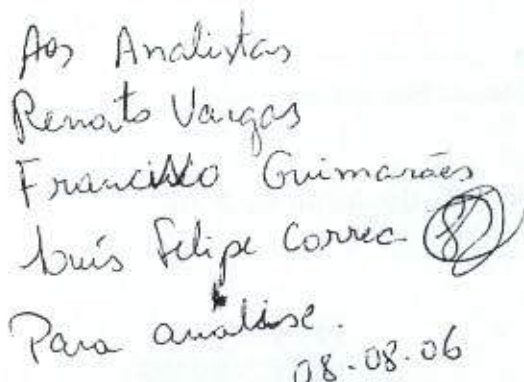 Aos Analistas
Renato Vargas
Francisco Guimarães
Luís Felipe Correa
Para análise.
08.08.06